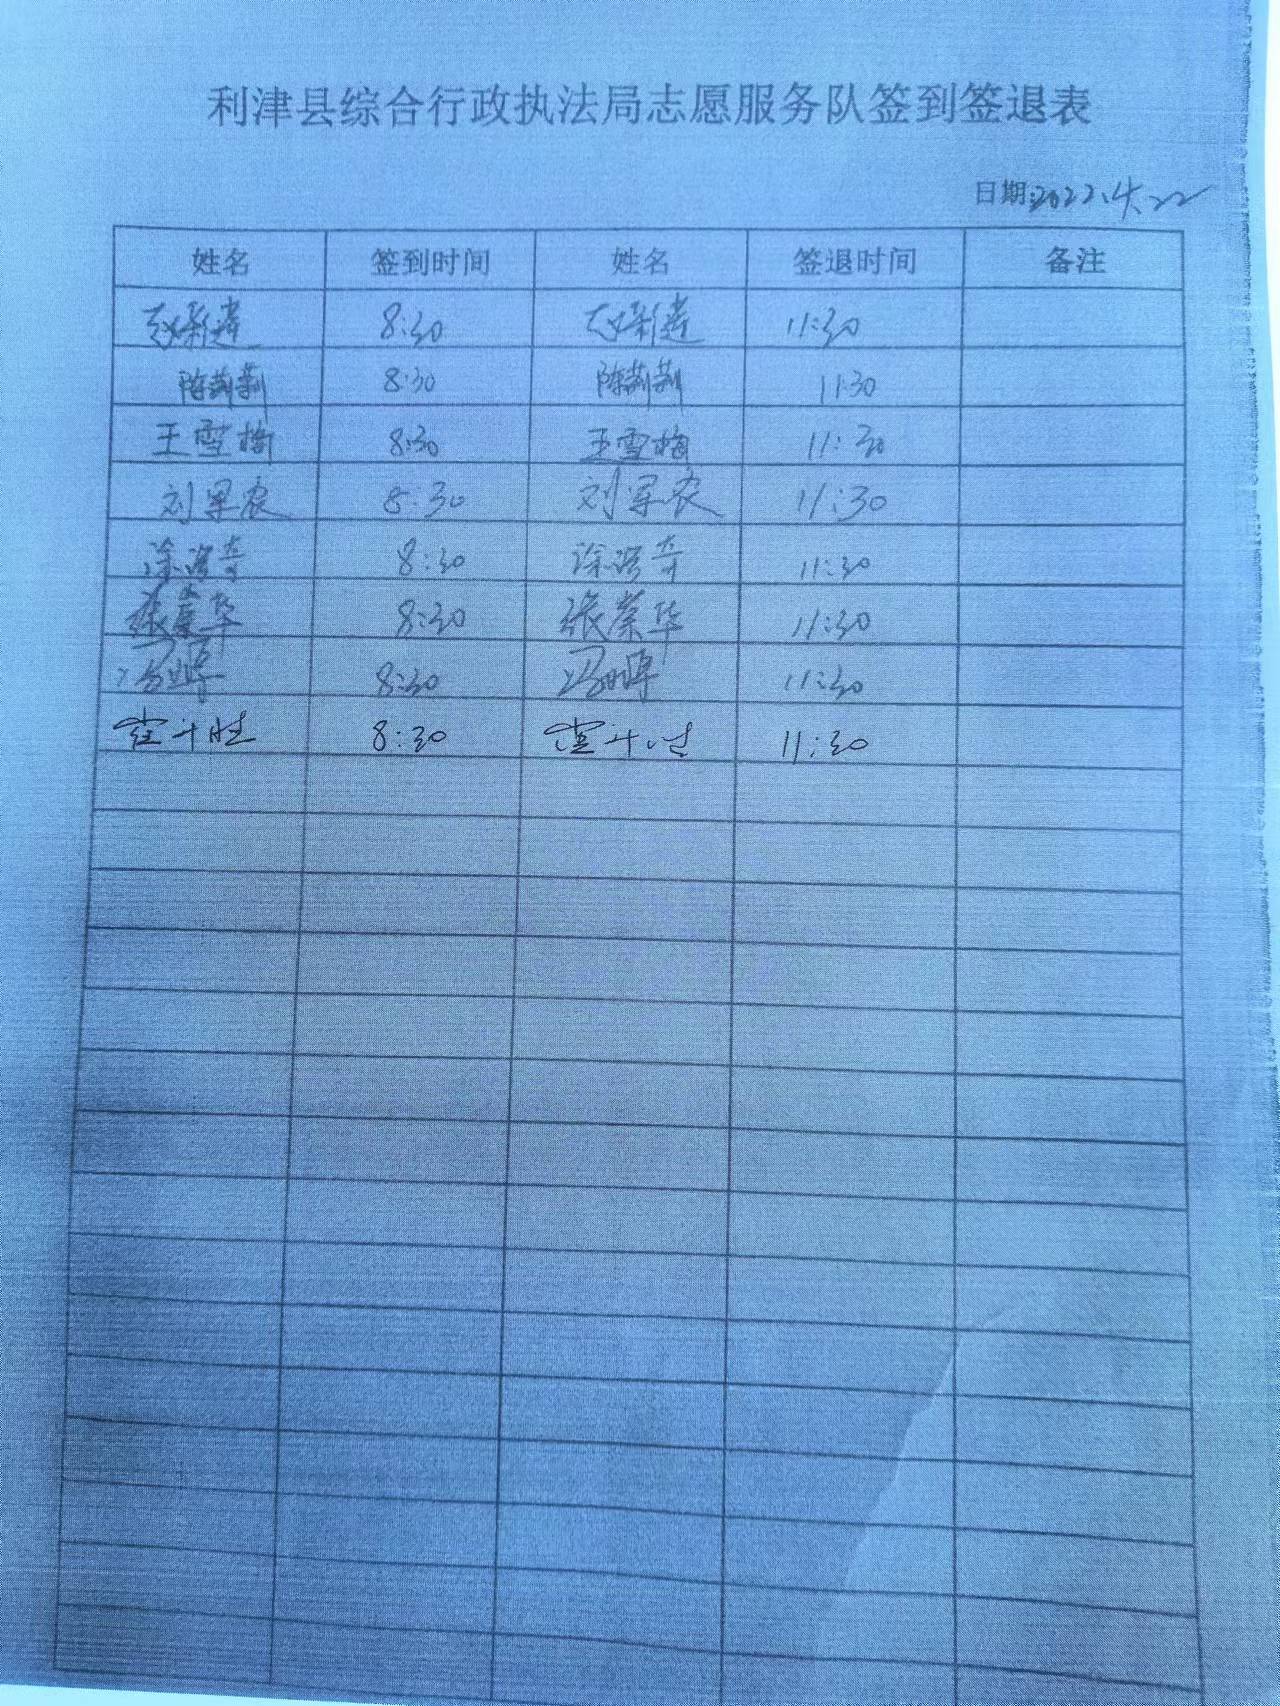 利津县综合行政执法局志愿服务队签到签退表
日期:2022.4.22
姓名 签到时间 姓名 签退时间 备注
赵新建 8:30 赵新建 11:30
陈莉莉 8:30 陈莉莉 11:30
王雪梅 8:30 王雪梅 11:30
刘军农 8:30 刘军农 11:30
8:30 11:30
张荣华 8:30 张荣华 11:30
8:30 11:30
8:30 11:30